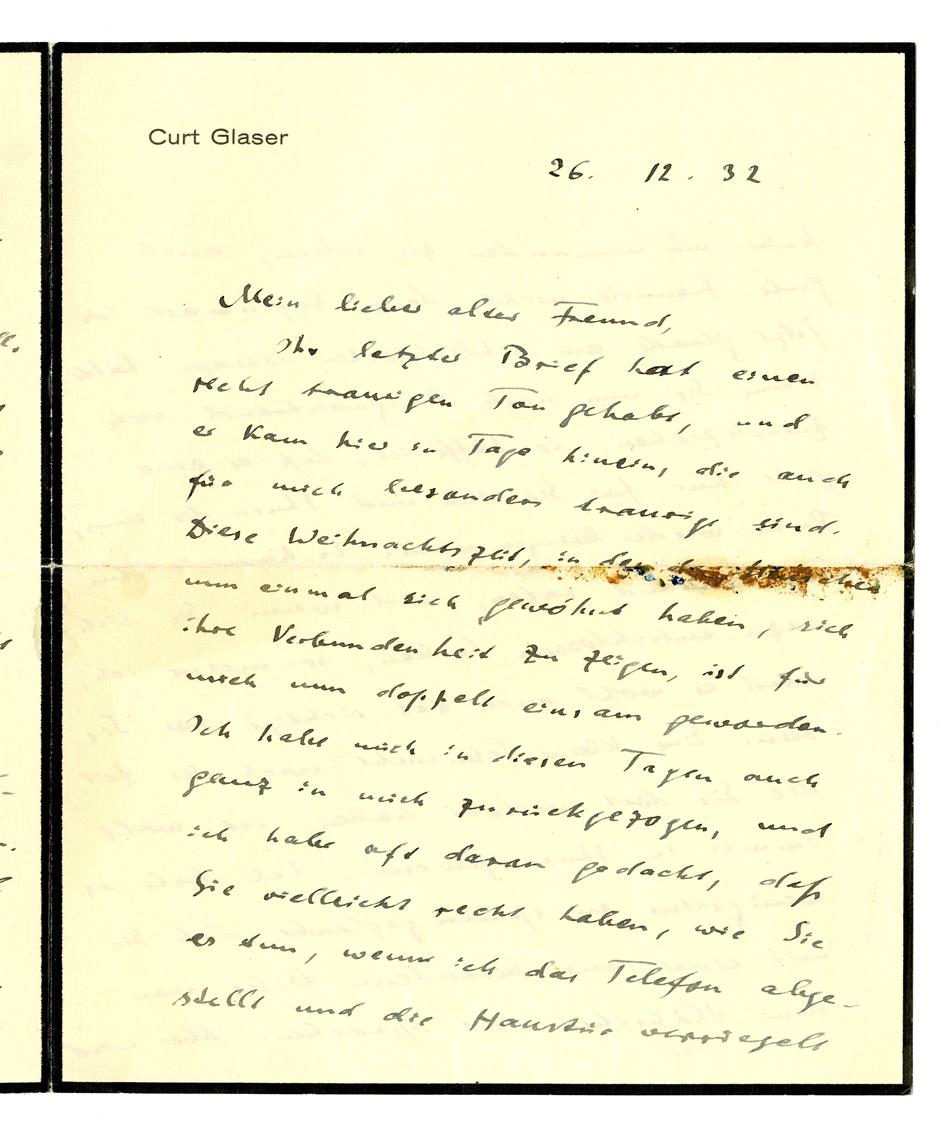 Curt Glaser
26. 12. 32
Mein lieber alter Freund,
Ihr letzter Brief hat einen
recht traurigen Ton gehabt, und
er kam hier in Tage hinein, die auch
für mich besonders traurig sind.
Diese Weihnachtszeit, in der die Menschen
nun einmal sich gewöhnt haben, sich
ihre Verbundenheit zu zeigen, ist für
mich nun doppelt einsam geworden.
Ich habe mich in diesen Tagen auch
ganz in mich zurückgezogen, und
ich habe oft daran gedacht, daß
Sie vielleicht recht haben, wie Sie
es tun, wenn ich das Telefon abge-
stellt und die Haustür verriegelt